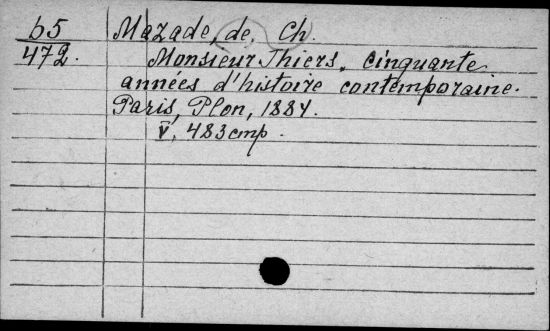 б5 Mazade, de, Ch.
472. Monsieur Thiers. Cinquante
années d'histoire contemporaine.
Paris, Plon, 1884.
V, 483 cmp.